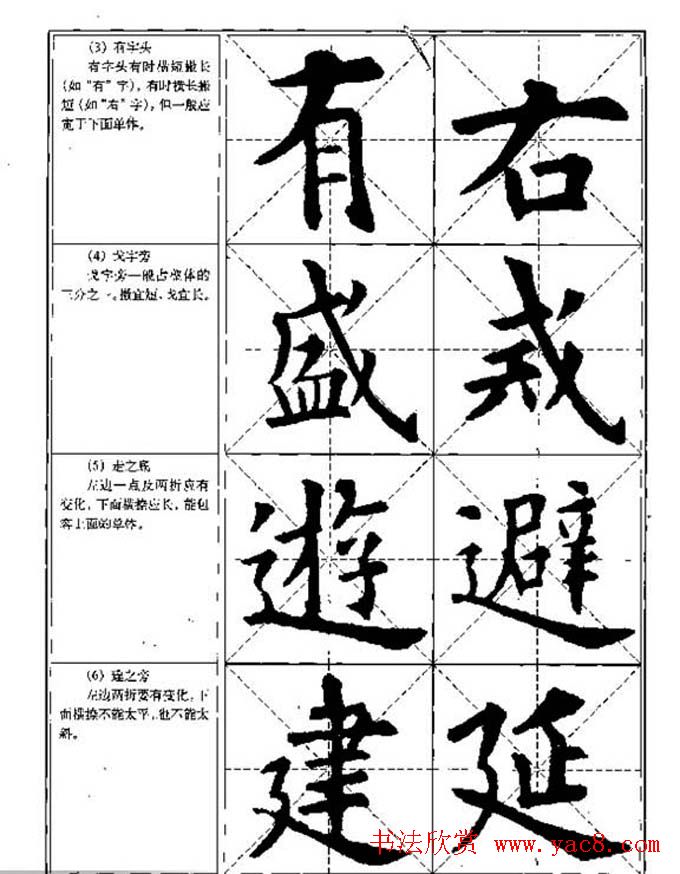 (3) 有字头
有字头有时横短撇长
(如“有”字),有时横长撇
短(如“右”字),但一般应
宽于下面单体。
有 右
(4) 戈字旁
戈字旁一般占整体的
三分之一。撇宜短、戈宜长。
盛 戒
(5) 走之底
左边一点及两折应有
变化,下面横捺应长,能包
容上面的单体。
遊 避
(6) 建之旁
左边两折要有变化,下
面横捺不能太平,也不能太
斜。
建 延
书法欣赏 www.yac8.com